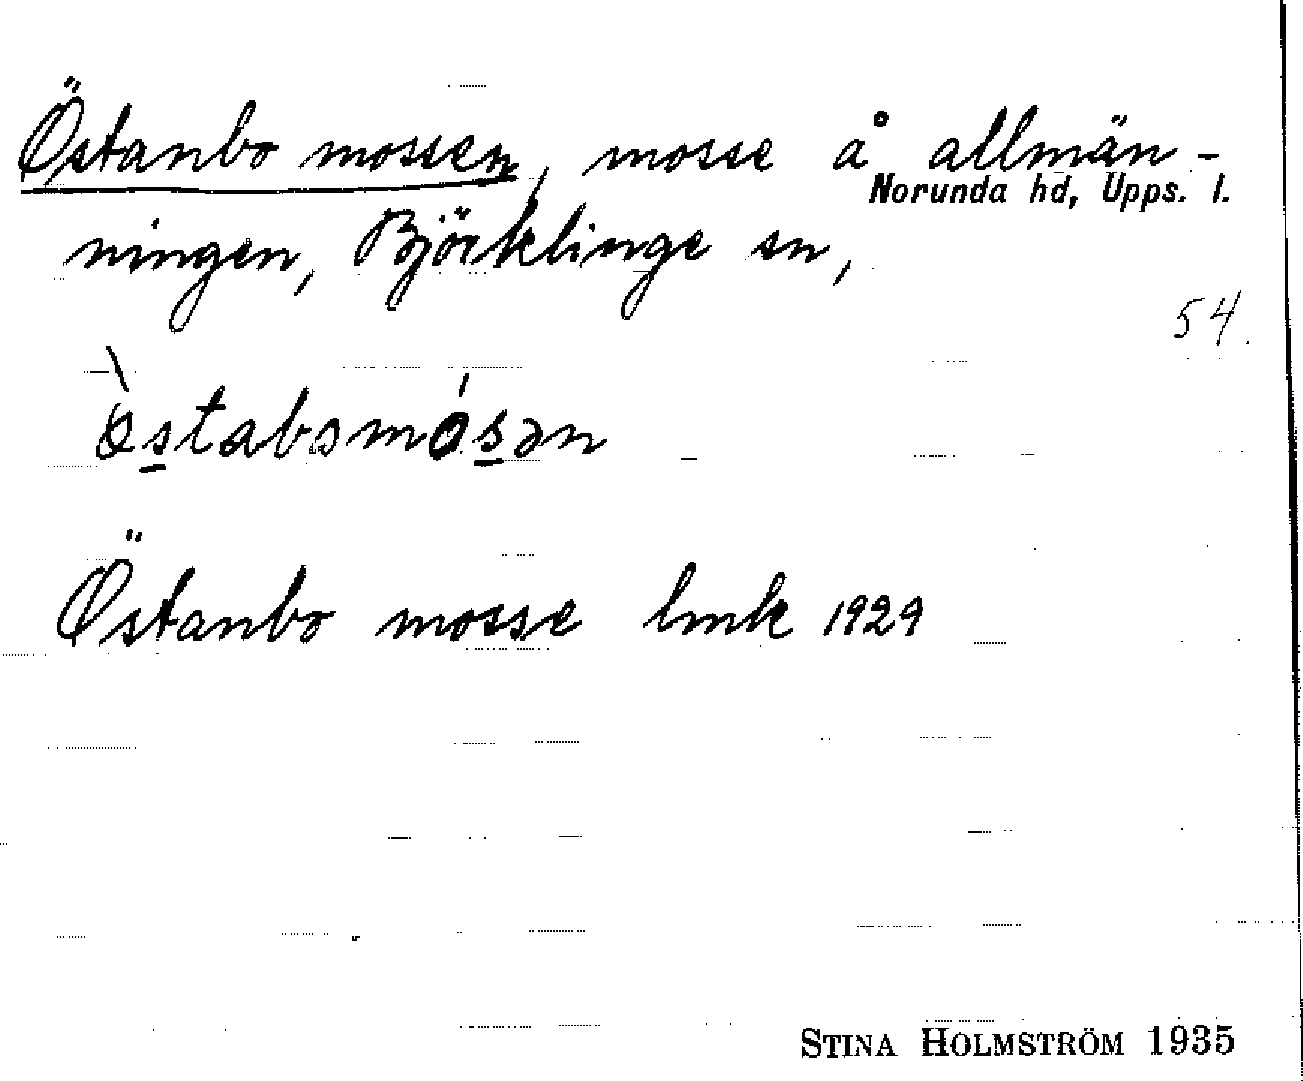 Östanbo mossen, mosse å allmän-
Norunda hd, Upps. l.
ningen, Björklinge sn,
54.
Östanbo mosse lmk 1929
STINA HOLMSTRÖM 1935